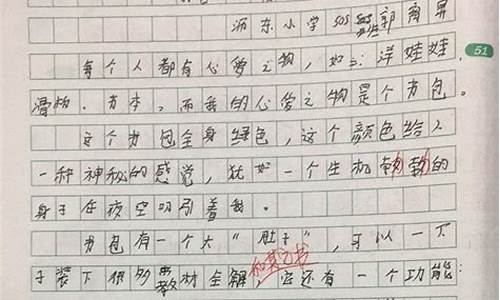 沥东小学505班郭
51
每个人都有心爱之物,如:洋娃娃,
滑板.书本,而我的心爱之物是个书包。
这个书包全身绿色,这个颜色给人
一种神秘的感觉,犹如一个生机勃勃的
身子在夜空吸引着我。
书包有一个大“肚子”,可以一下
子装下很多教材全解和其它书它还有一个功能